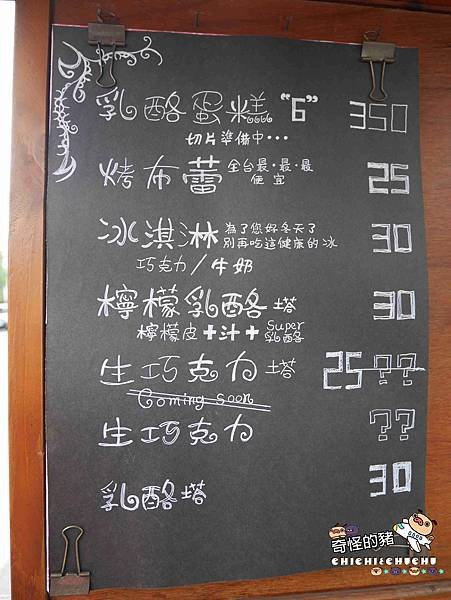 乳酪蛋糕“6” 350
切片準備中···
烤布蕾 全台最·最·最 25
便宜
冰淇淋 為了您好冬天了 30
別再吃這健康的冰
巧克力/牛奶
檸檬乳酪塔 30
檸檬皮+汁+Super乳酪
生巧克力塔 25 ??
Coming soon
生巧克力 ??
乳酪塔 30
奇怪的豬
CHICHI&CHUCHU